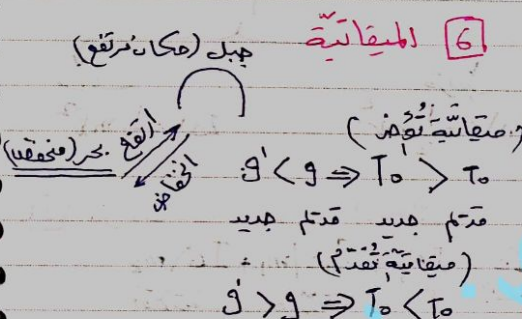 6 الميقاتيّة
جبل (مكان مرتفع)
ارتفع
انخفاض
بحر (منخفض)
(ميقاتيّة تُؤخر)
g' < g ⇒ T₀' > T₀
قديم جديد قديم جديد
(ميقاتيّة تُقدّم)
g' > g ⇒ T₀' < T₀